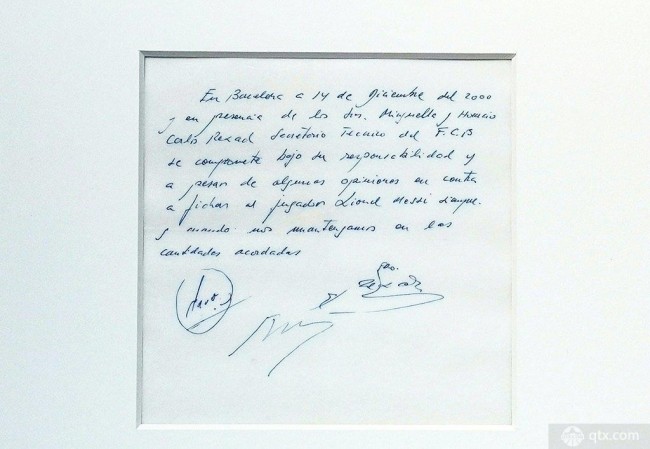 En Barcelona a 14 de Diciembre del 2000
y en presencia de los Sres. Minguella y Horacio
Carlos Rexach Secretario Técnico del F.C.B
se compromete bajo su responsabilidad y
a pesar de algunas opiniones en contra
a fichar al jugador Lionel Messi siempre
y cuando nos mantengamos en las
cantidades acordadas
qtx.com